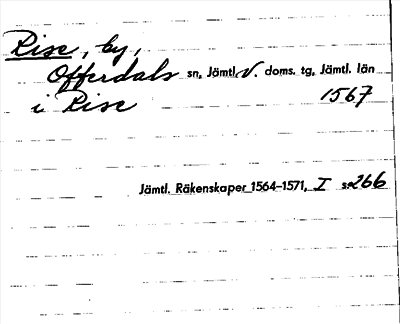 Rise, by,
Offerdals sn, Jämtl. V. doms. tg, Jämtl. län
i Rise 1567
Jämtl. Räkenskaper 1564-1571, I s. 266